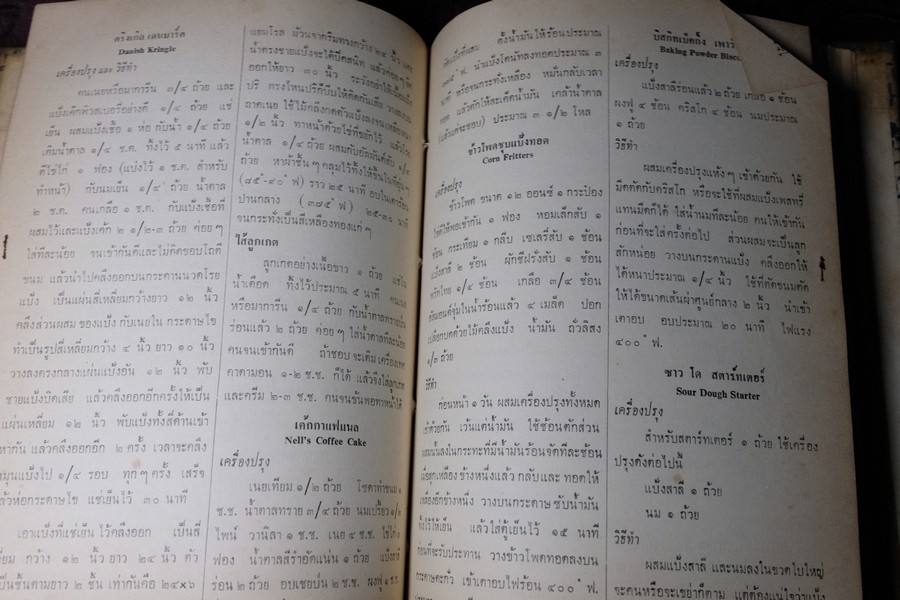 คริงเกิล เดนมาร์ค
Danish Kringle
เครื่องปรุง และ วิธีทำ
คนเนยหรือมาการีน ๓/๔ ถ้วย และ
แป้งเค้กตัวสเบอรี่อย่างดี ๑/๔ ถ้วย แช่
เย็น ผสมแป้งเชื้อ ๑ ห่อ กับน้ำ ๑/๔ ถ้วย
เติมน้ำตาล ๑/๔ ช.ต. ทิ้งไว้ ๕ นาที แล้ว
ตีไข่ไก่ ๑ ฟอง (แบ่งไว้ ๑ ช.ต. สำหรับ
ทำหน้า) กับนมเย็น ๑/๔ ถ้วย น้ำตาล
๒ ช.ต. คนเกลือ ๑ ช.ต. กับแป้งเชื้อที่
ผสมไว้และแป้งเค้ก ๒ ๑/๒-๓ ถ้วย ค่อย ๆ
ใส่ทีละน้อย จนเข้ากันดีและไม่ติดขอบโถตี
ขนม แล้วนำไปคลึงออกบนกระดานนวดโรย
แป้ง เป็นแผ่นสี่เหลี่ยมกว้างยาว ๑๒ นิ้ว
คลึงส่วนผสม ของแป้ง กับเนยใน กระดาษไข
ทำเป็นรูปสี่เหลี่ยมกว้าง ๔ นิ้ว ยาว ๑๐ นิ้ว
วางลงตรงกลางแผ่นแป้งอัน ๑๒ นิ้ว พับ
ชายแป้งปิดเสีย แล้วคลึงออกอีกครั้งให้เป็น
แผ่นเหลี่ยม ๑๒ นิ้ว พับแป้งทั้งสี่ด้านเข้า
หากัน แล้วคลึงออกอีก ๒ ครั้ง เวลาจะคลึง
หมุนแป้งไป ๑/๔ รอบ ทุก ๆ ครั้ง เสร็จ
แล้วห่อกระดาษไข แช่เย็นไว้ ๓๐ นาที
เอาแป้งที่แช่เย็น ไว้คลึงออก เป็นสี่
เหลี่ยม กว้าง ๑๒ นิ้ว ยาว ๒๔ นิ้ว ตัด
เป็นชิ้นตามยาว ๒ ชิ้น เท่ากันคือ ๒๔×๖
๒๔ นิ้ว
๓๐ นิ้ว
๑/๒ นิ้ว ทาหน้าด้วยไข่ที่
น้ำตาล ๑/๔ ถ้วย ผสมกับอัลมันด์สับ ๑/๔
ถ้วย หาผ้าชื้น ๆ คลุมไว้ทิ้งให้ขึ้นในที่อุ่น ๆ
(๘๕°-๙๐° ฟ) ราว ๒๕ นาที อบในเตาร้อน
ปานกลาง (๓๗๕° ฟ) ๒๕-๓๐ นาที
จนกระทั่งเป็นสีเหลืองทองแก่ ๆ
ไส้ลูกเกต
ลูกเกตอย่างเนื้อขาว ๑ ถ้วย แช่ใน
น้ำเดือด ทิ้งไว้ประมาณ ๕ นาที คนเนย
หรือมาการีน ๑/๔ ถ้วย กับน้ำตาลทรายป่น
ร่อนแล้ว ๒ ถ้วย ค่อย ๆ ใส่น้ำตาลทีละน้อย
คนจนเข้ากันดี ถ้าชอบ จะเติมเครื่องเทศ
คาดามอน ๑-๒ ช.ช. ก็ได้ แล้วจึงใส่ลูกเกต
และครีม ๒-๓ ช.ช. คนจนข้นพอทาหน้าได้
เค้กกาแฟแนล
Nell's Coffee Cake
เครื่องปรุง
เนยเทียม ๑/๒ ถ้วย โซดาทำขนม ๑
ช.ช. น้ำตาลทราย ๓/๔ ถ้วย นมเปรี้ยว ๑/๒
ไพน์ วานิลา ๑ ช.ช. เนย ๔ ช.ช. ไข่ไก่
ฟอง น้ำตาลสีรำอัดแน่น ๑ ถ้วย แป้งสาลี
ร่อน ๒ ถ้วย อบเชยป่น ๒ ช.ช. ผงฟู ๑ ช.ช.
ตั้งน้ำมันให้ร้อนประมาณ
นำแป้งโดนัทลงทอดประมาณ ๓
นาที หรือจนกระทั่งเหลือง หมั่นกลับเวลา
ทอด แล้วตักให้สะเด็ดน้ำมัน เคล้าน้ำตาล
(แล้วแต่จะชอบ) ประมาณ ๓ ๑/๒ โหล
ข้าวโพดชุบแป้งทอด
Corn Fritters
เครื่องปรุง
ข้าวโพด ขนาด ๑๒ ออนซ์ ๑ กระป๋อง
ไข่ตีให้พอเข้ากัน ๑ ฟอง หอมเล็กสับ ๑
ช้อน กระเทียม ๑ กลีบ เซเลรี่สับ ๑ ช้อน
แป้งสาลี ๒ ช้อน ผักชีฝรั่งสับ ๑ ช้อน
พริกไทย ๑/๔ ช้อน เกลือ ๓/๔ ช้อน
อัลมอนด์จุ่มในน้ำร้อนแล้ว ๔ เมล็ด ปอก
เปลือกบดด้วยไม้คลึงแป้ง น้ำมัน ถั่วลิสง
๑/๓ ถ้วย
วิธีทำ
ก่อนหน้า ๑ วัน ผสมเครื่องปรุงทั้งหมด
เข้าด้วยกัน เว้นแต่น้ำมัน ใช้ช้อนตักส่วน
ผสมนั้นลงในกระทะที่มีน้ำมันร้อนจัดทีละช้อน
เมื่อสุกเหลือง ข้างหนึ่งแล้ว กลับและ ทอดให้
เหลืองอีกข้างหนึ่ง วางบนกระดาษ ซับน้ำมัน
ทิ้งไว้ให้เย็น แล้วใส่ตู้เย็นไว้ ๑๕ นาที
ก่อนที่จะรับประทาน วางข้าวโพดทอดลงบน
กระดาษตะกั่ว เข้าเตาอบไฟร้อน ๔๐๐° ฟ.
บิสกิตเบ็คกิ้ง เพาว์
Baking Powder Bisc
เครื่องปรุง
แป้งสาลีร่อนแล้ว ๒ ถ้วย เกลือ ๑ ช้อน
ผงฟู ๔ ช้อน คริสโก ๔ ช้อน นมประมาณ
๑ ถ้วย
วิธีทำ
ผสมเครื่องปรุงแห้ง ๆ เข้าด้วยกัน ใช้
มีดตัดกับคริสโก หรือจะใช้ที่ผสมแป้งเพสทรี่
แทนมีดก็ได้ ใส่น้ำนมทีละน้อย คนให้เข้ากัน
ก่อนที่จะใส่ครั้งต่อไป ส่วนผสมจะเป็นลูก
สักหน่อย วางบนกระดานแป้ง คลึงออกให้
ได้หนาประมาณ ๑/๔ นิ้ว ใช้ที่ตัดขนมตัด
ให้ได้ขนาดเส้นผ่าศูนย์กลาง ๒ นิ้ว นำเข้า
เตาอบ อบประมาณ ๒๐ นาที ไฟแรง
๔๐๐° ฟ.
ซาว โด สตาร์ทเตอร์
Sour Dough Starter
เครื่องปรุง
สำหรับสตาร์ทเตอร์ ๑ ถ้วย ใช้เครื่อง
ปรุงดังต่อไปนี้
แป้งสาลี ๑ ถ้วย
นม ๑ ถ้วย
วิธีทำ
ผสมแป้งสาลี และนมลงในขวดใบใหญ่
จะคนหรือจะเขย่าก็ตาม แต่ต้องแน่ใจว่าแป้ง